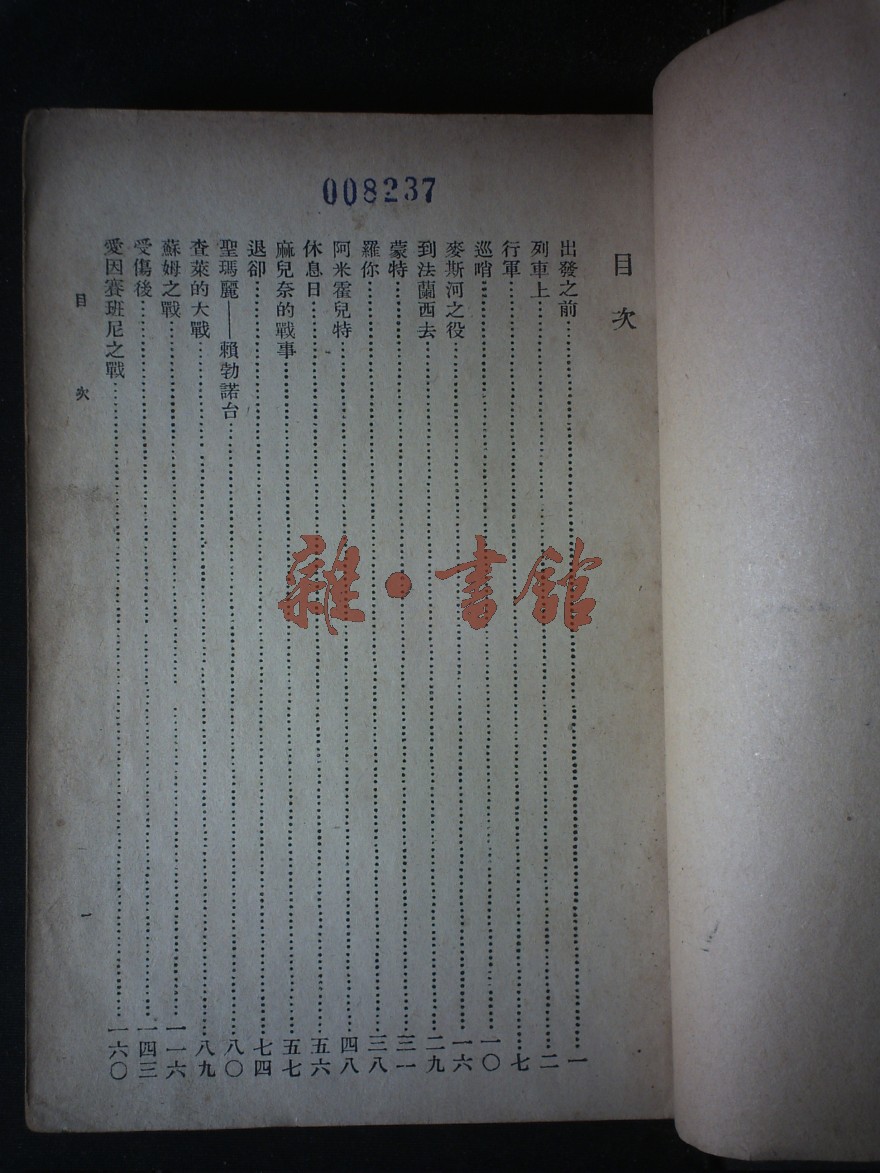 008237
目次
出發之前……一
列車上……二
行軍……七
巡哨……一〇
麥斯河之役……一六
到法蘭西去……二九
蒙特……三一
羅你……三八
阿米霍兒特……四八
休息日……五六
麻兒奈的戰事……五七
退卻……七四
聖瑪麗——賴勃諾台……八〇
查萊的大戰……八九
蘇姆之戰……一一六
受傷後……一四三
愛因賽班尼之戰……一六〇
目次 一
雜·書館